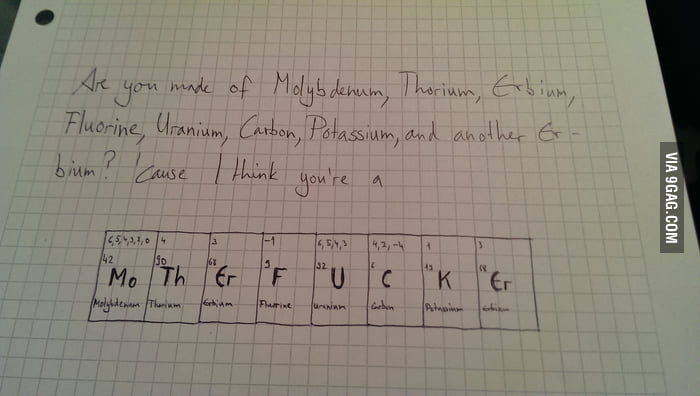 Are you made of Molybdenum, Thorium, Erbium,
Fluorine, Uranium, Carbon, Potassium, and another Er-
bium? 'Cause I think you're a
6,5,4,3,2,0 4 3 -1 6,5,4,3 4,2,-4 1 3
42 90 68 9 92 6 19 68
Mo Th Er F U C K Er
Molybdenum Thorium Erbium Fluorine Uranium Carbon Potassium Erbium
VIA 9GAG.COM